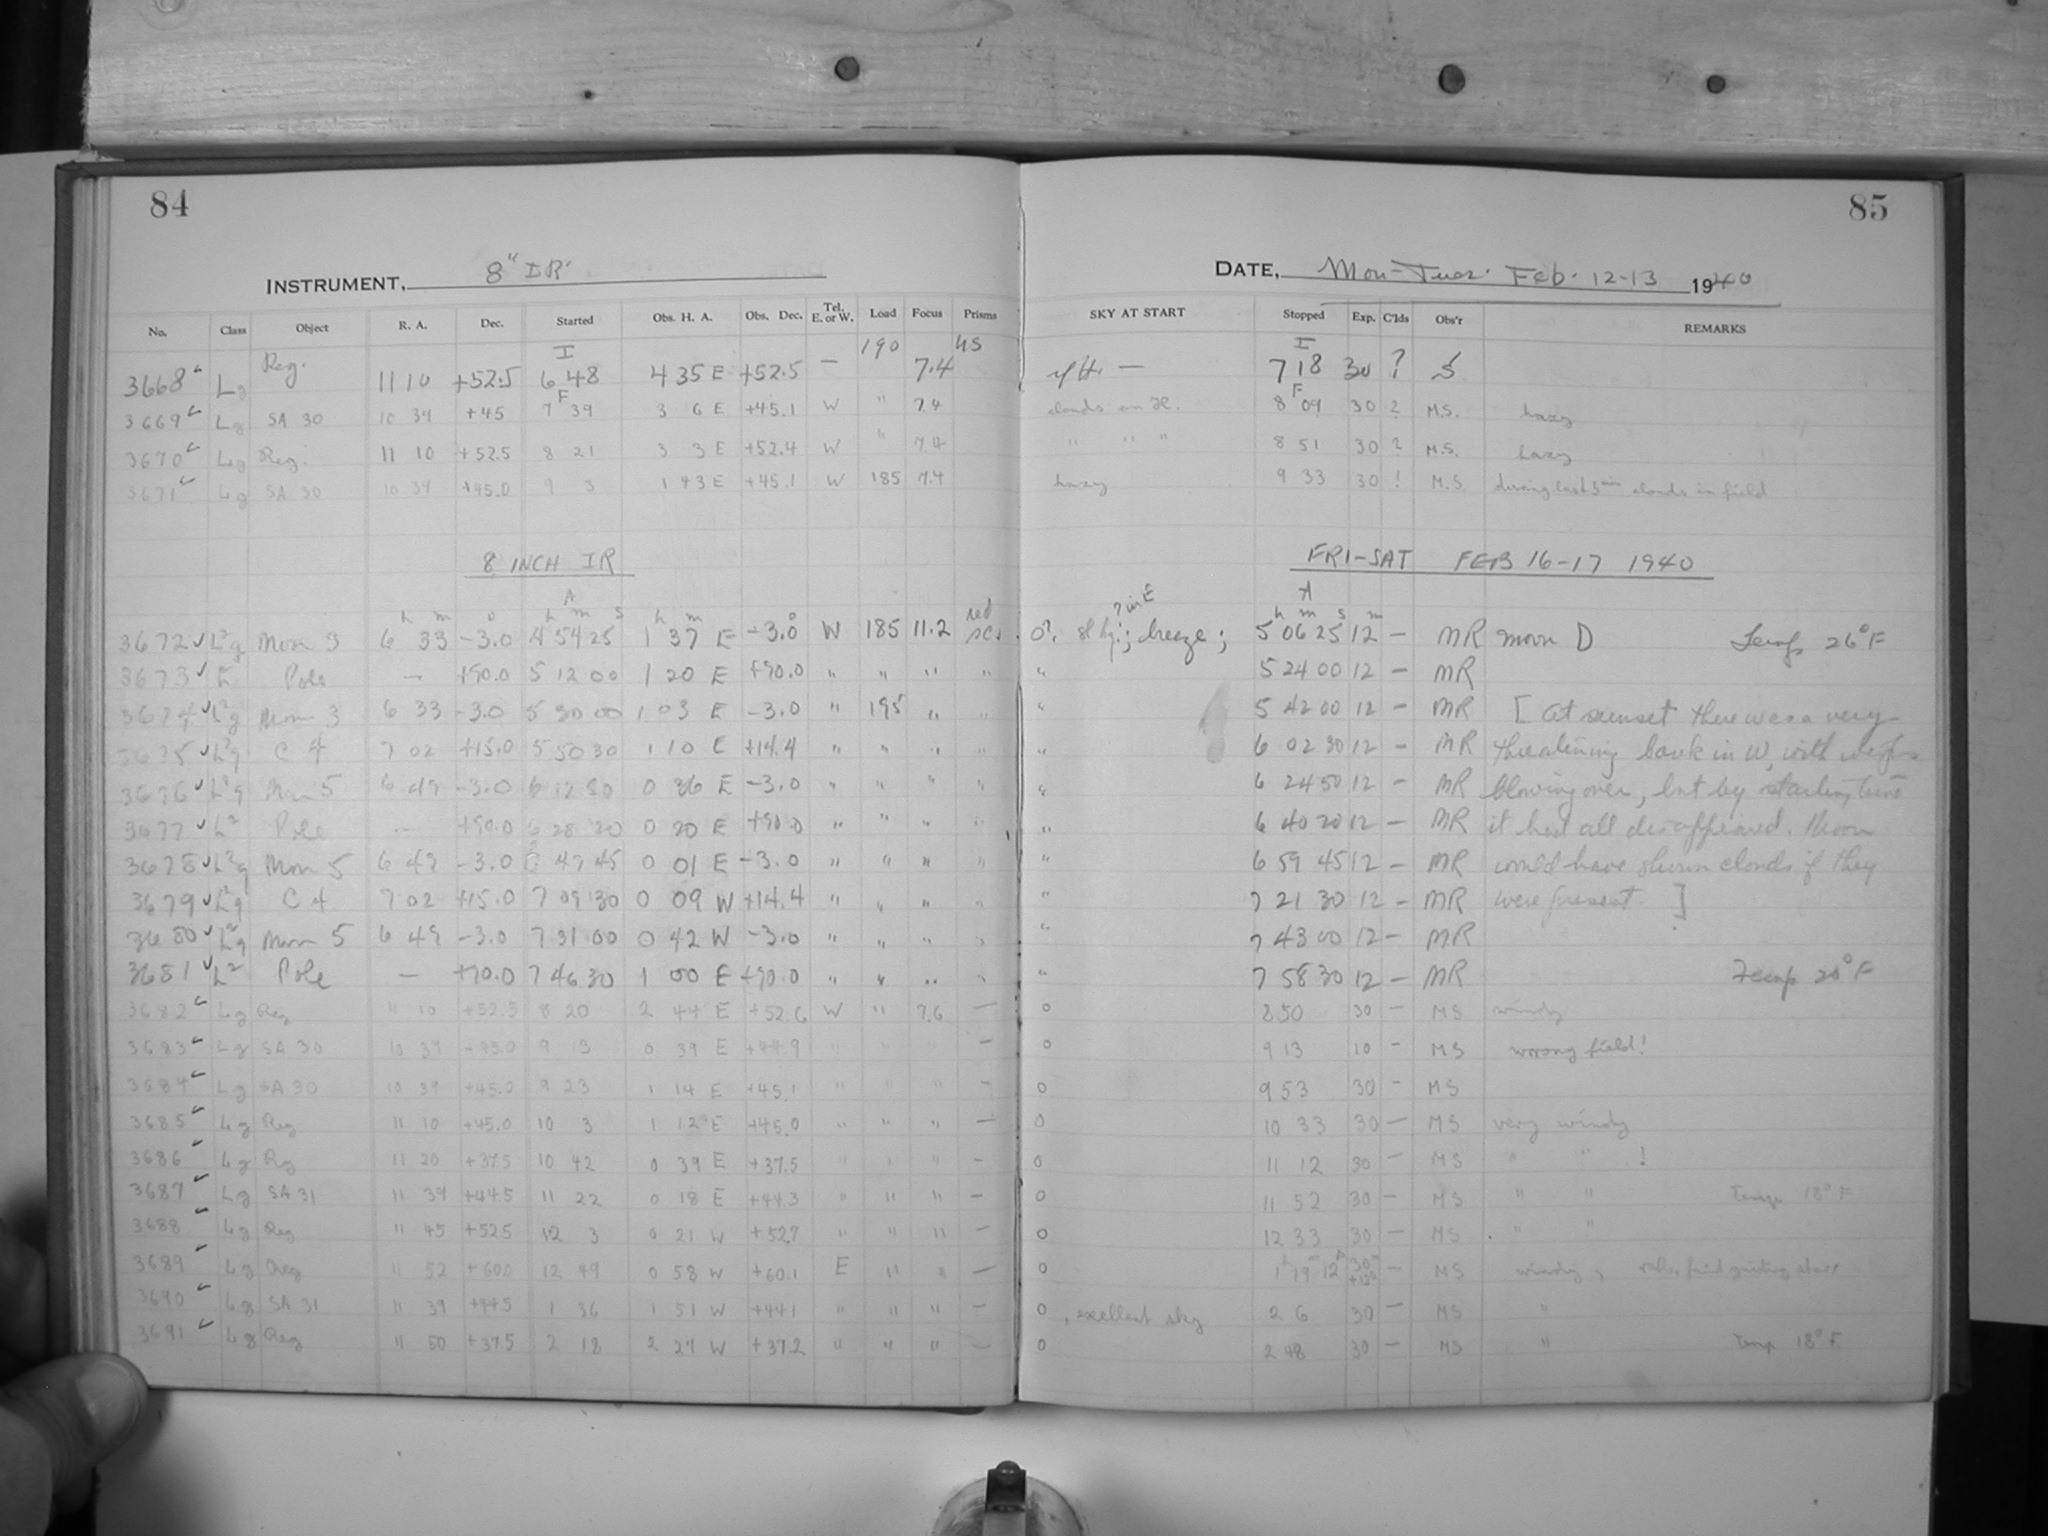 84
85
INSTRUMENT, 8" IR.
DATE, Mon-Tues. Feb. 12-13 1940
No. Class Object R. A. Dec. Started Obs. H. A. Obs. Dec. Tel. E. or W. Load Focus Prisms SKY AT START Stopped Exp. C'lds Obs'r REMARKS
3668 Lg Reg. 11 10 +52.5 6 48 4 35 E +52.5 — 190 7.4 — 7 18 30 ? S
3669 Lg SA 30 10 39 +45 7 39 3 6 E +45.1 W " 7.4 clouds on H. 8 09 30 ? M.S. hazy
3670 Lg Reg. 11 10 +52.5 8 21 3 3 E +52.4 W " 7.4 " " " 8 51 30 ? M.S. hazy
3671 Lg SA 30 10 39 +45.0 9 3 1 43 E +45.1 W 185 7.4 hazy 9 33 30 ! M.S. during last 5 min clouds in field
8 INCH IR FRI-SAT FEB 16-17 1940
3672 L²g Mon 3 6 33 -3.0 4 54 25 1 37 E -3.0 W 185 11.2 red 0?, ? in E breeze; 5 06 25 12 — MR moon D Temp 26° F
3673 L² Pole — +90.0 5 12 00 1 20 E +90.0 " " " " " 5 24 00 12 — MR
3674 L²g Mon 3 6 33 -3.0 5 30 00 1 03 E -3.0 " 195 " " " 5 42 00 12 — MR [At sunset there was a very
3675 L²g C 4 7 02 +15.0 5 50 30 1 10 E +14.4 " " " " " 6 02 30 12 — MR threatening bank in W, with wisps
3676 L²g Mon 5 6 49 -3.0 6 12 50 0 36 E -3.0 " " " " " 6 24 50 12 — MR blowing over, but by starting time
3677 L² Pole — +90.0 6 28 20 0 20 E +90.0 " " " " " 6 40 20 12 — MR it had all disappeared. Moon
3678 L²g Mon 5 6 49 -3.0 6 47 45 0 01 E -3.0 " " " " " 6 59 45 12 — MR would have shown clouds if they
3679 L²g C 4 7 02 +15.0 7 09 30 0 09 W +14.4 " " " " " 7 21 30 12 — MR were present. ]
3680 L²g Mon 5 6 49 -3.0 7 31 00 0 42 W -3.0 " " " " " 7 43 00 12 — MR
3681 L² Pole — +90.0 7 46 30 1 00 E +90.0 " " " " " 7 58 30 12 — MR Temp 20° F
3682 Lg Reg 11 10 +52.5 8 20 2 44 E +52.6 W " 7.6 — 0 8 50 30 — MS windy
3683 Lg SA 30 10 39 +45.0 9 13 0 39 E +44.9 " " " — 0 9 13 10 — MS wrong field!
3684 Lg SA 30 10 39 +45.0 9 23 1 14 E +45.1 " " " — 0 9 53 30 — MS
3685 Lg Reg 11 10 +45.0 10 3 1 12 E +45.0 " " " — 0 10 33 30 — MS very windy
3686 Lg Reg 11 20 +37.5 10 42 0 39 E +37.5 " " " — 0 11 12 30 — MS " " !
3687 Lg SA 31 11 39 +44.5 11 22 0 18 E +44.3 " " " — 0 11 52 30 — MS " " Temp 18° F
3688 Lg Reg 11 45 +52.5 12 3 0 21 W +52.7 " " " — 0 12 33 30 — MS " "
3689 Lg Reg 11 52 +60.0 12 49 0 58 W +60.1 E " " — 0 1 19 12 30 +12 — MS windy, faint guiding stars
3690 Lg SA 31 11 39 +44.5 1 36 1 51 W +44.1 " " " — 0, exellent sky 2 6 30 — MS "
3691 Lg Reg 11 50 +37.5 2 18 2 27 W +37.2 " " " — 0 2 48 30 — MS " Temp 18° F